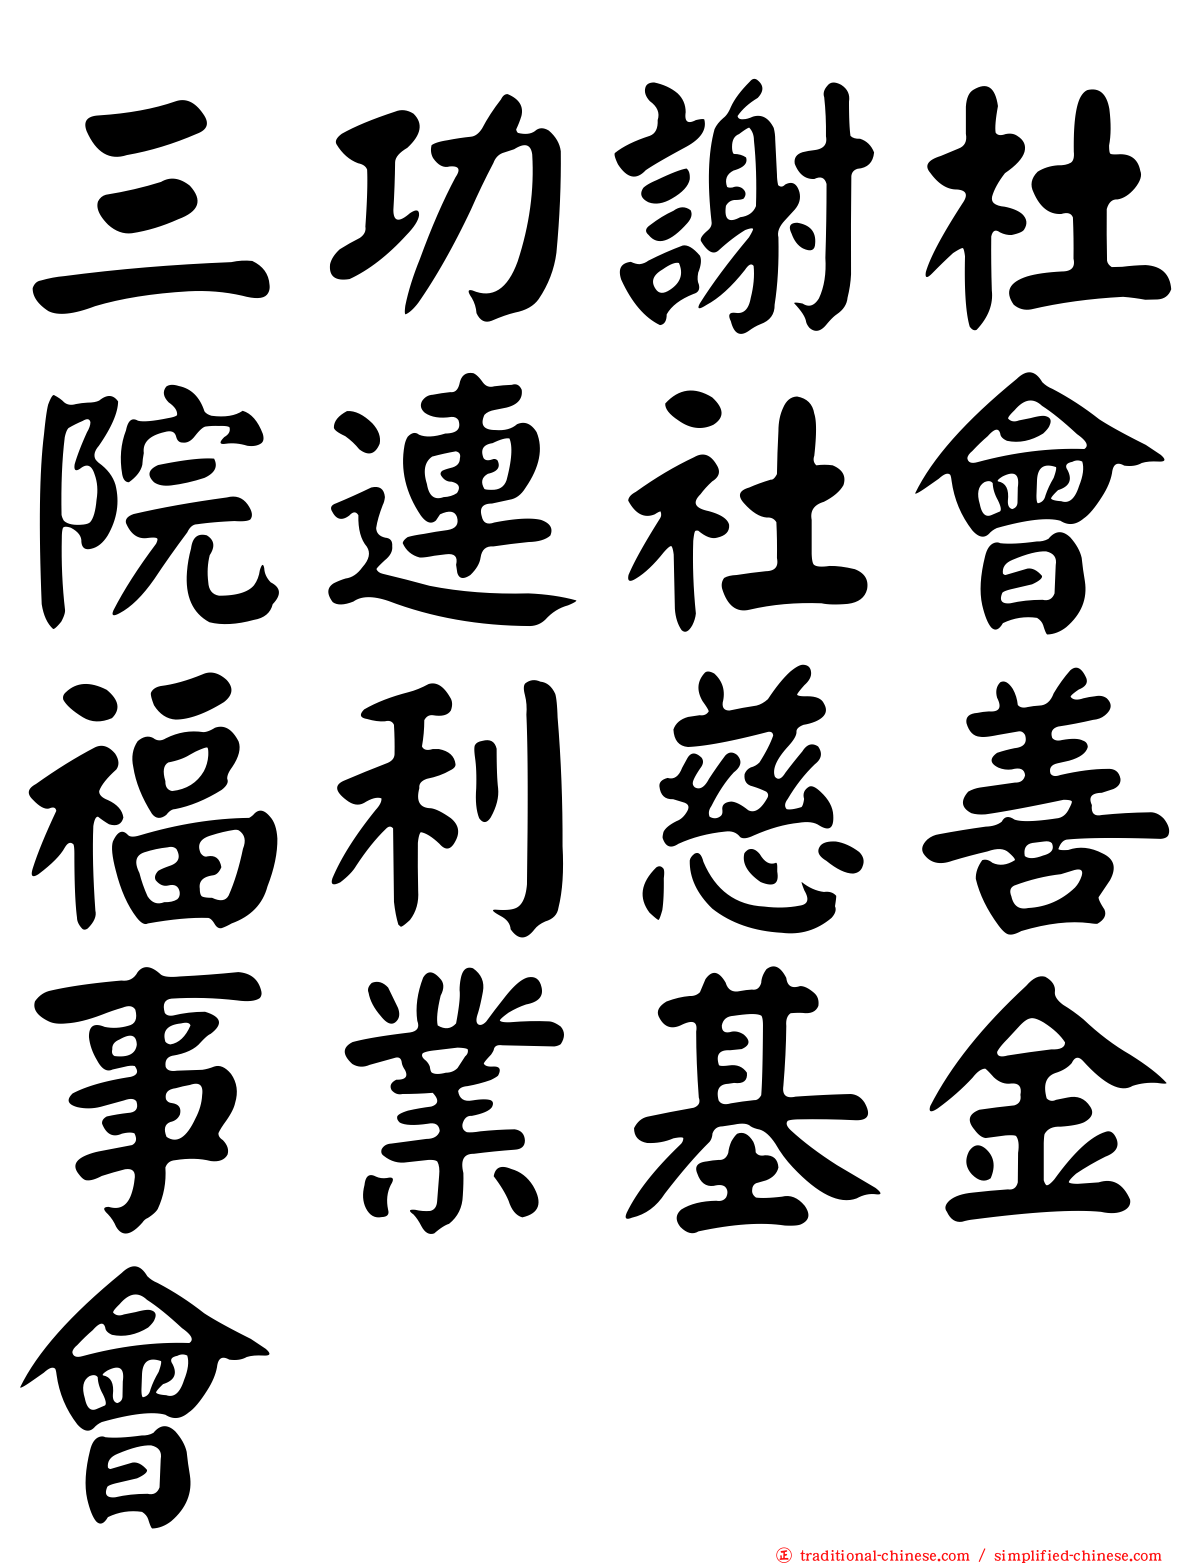 三功謝杜
院連社會
福利慈善
事業基金
會
㊣ traditional-chinese.com / simplified-chinese.com